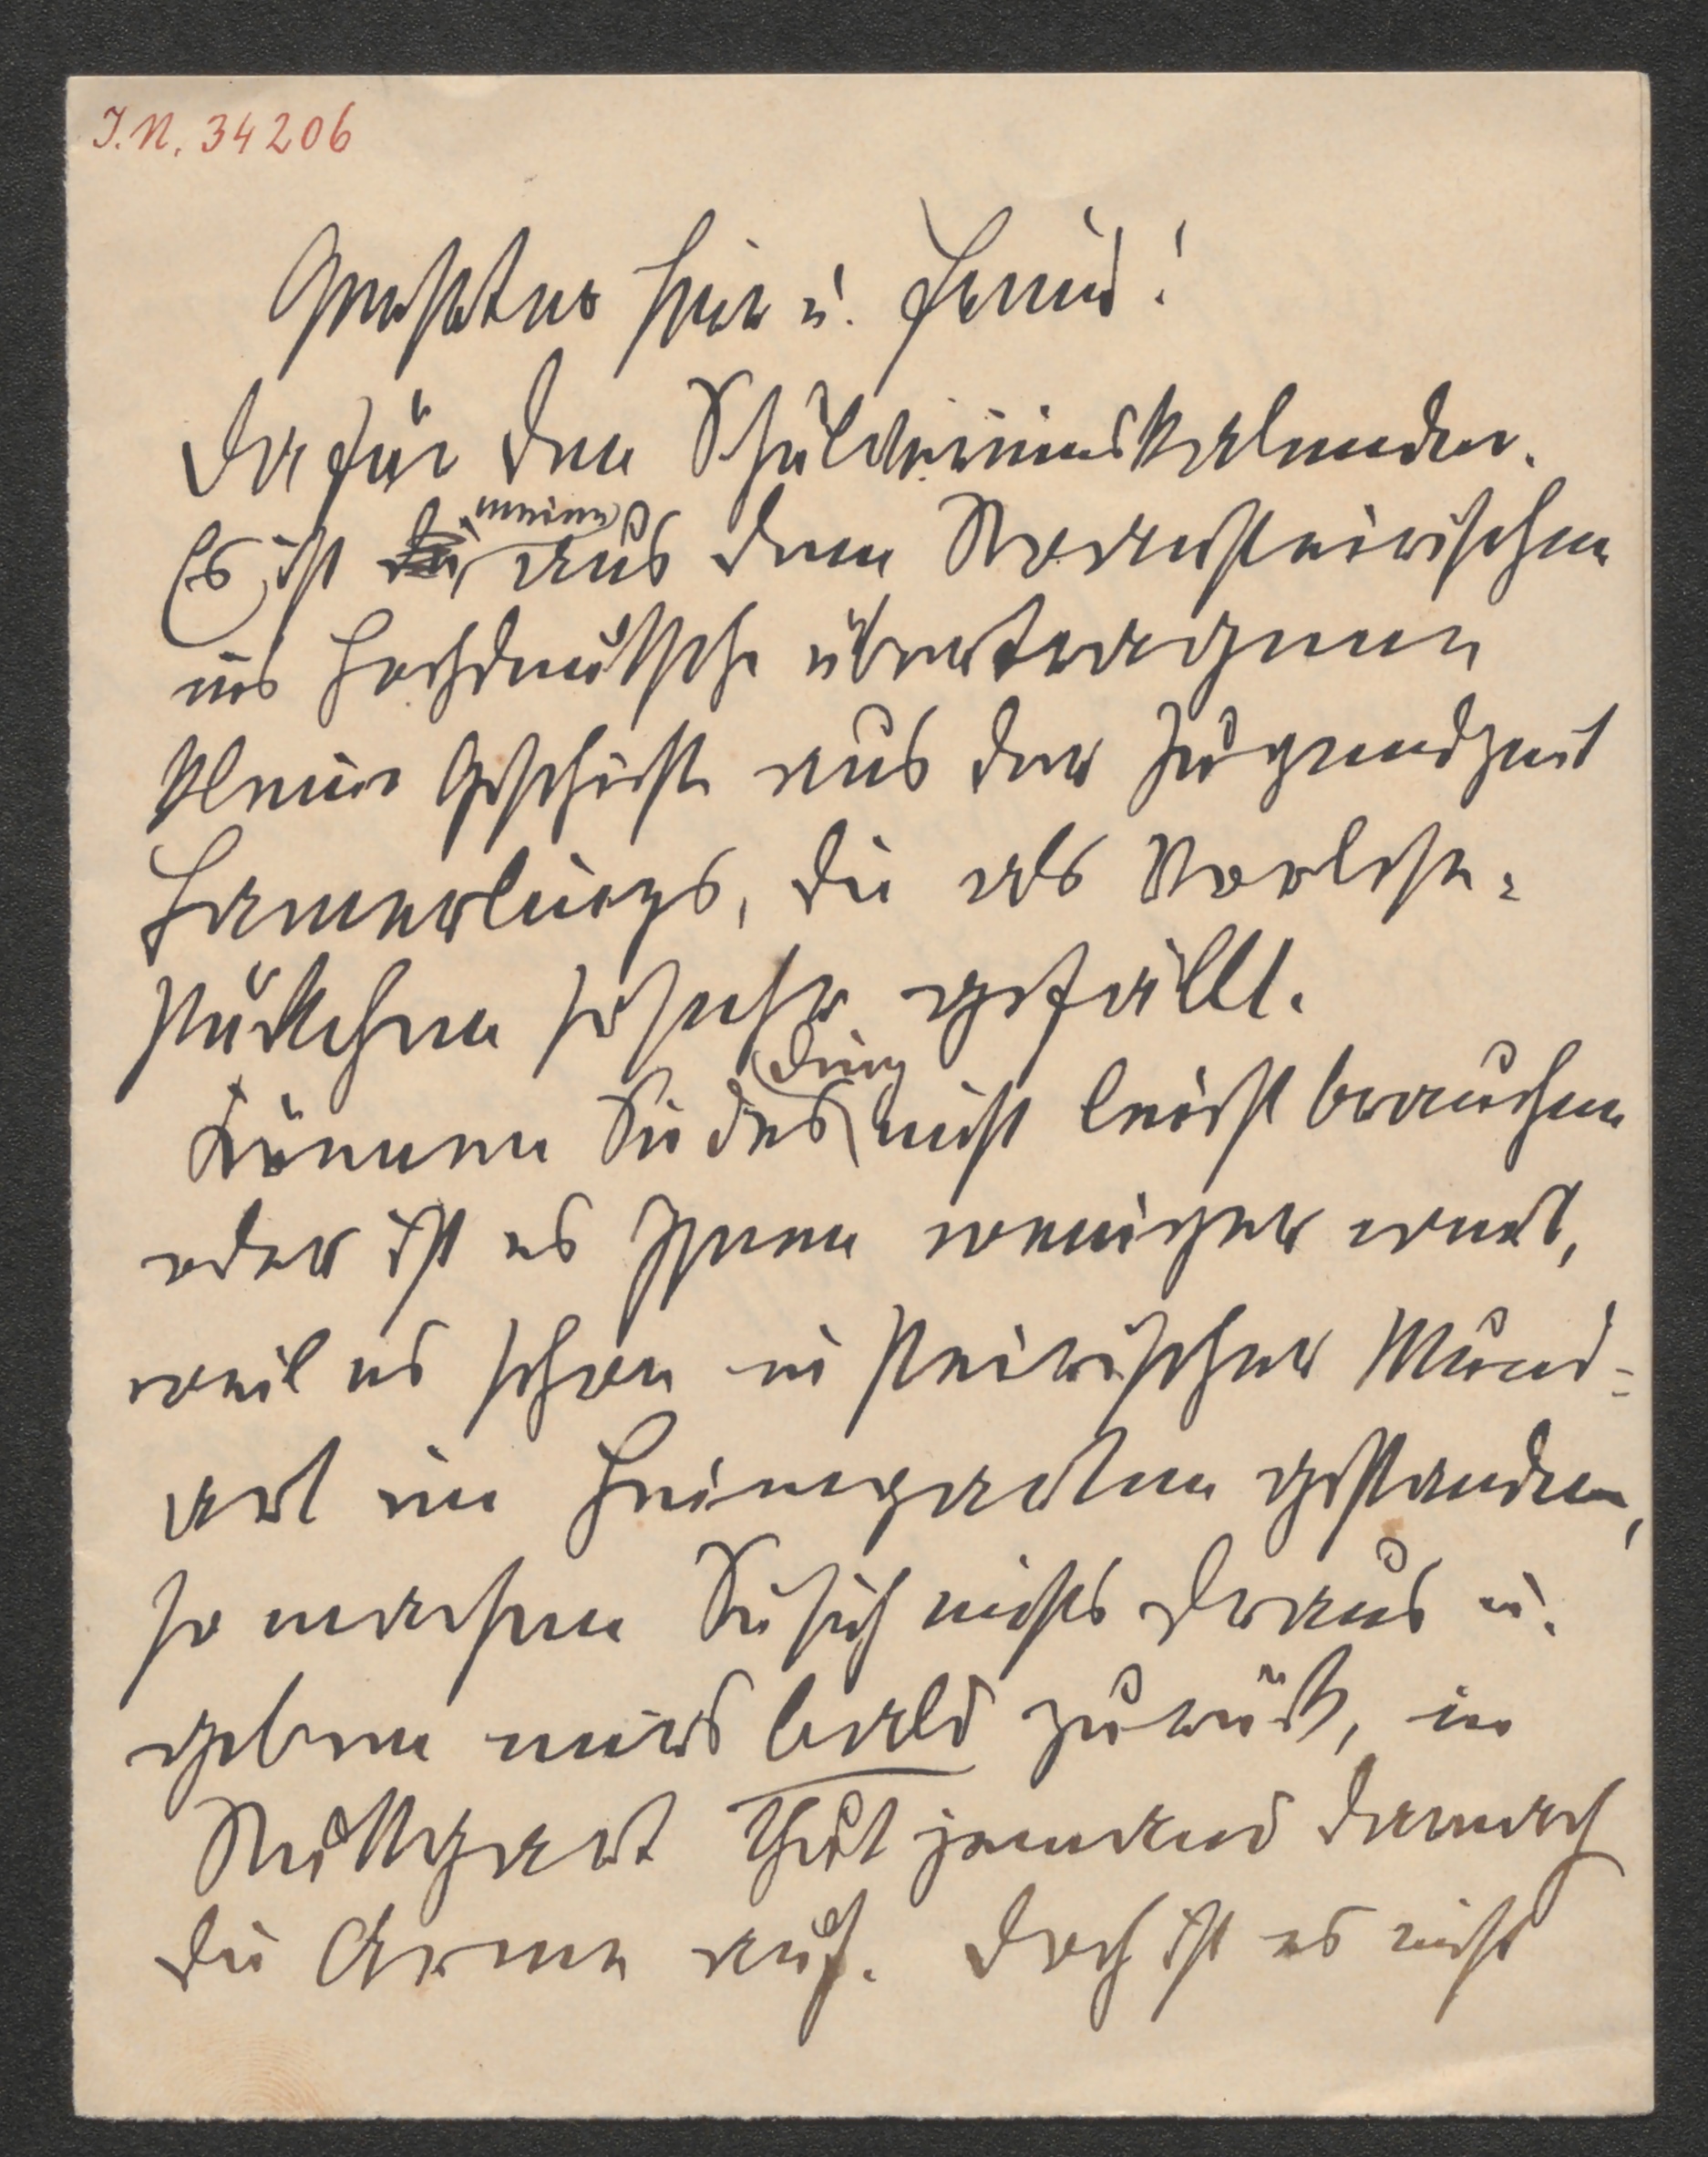 I.N. 34206
Herr u. Freund!
Da für den Schulvereinskalender.
Es ist meine aus dem
ins Hochdeutsche übertragene
kleine Geschichte aus der Jugendzeit
Hamerlings, die als Vorlese-
stückchen so sehr gefällt.
Können Sie das Ding nicht leicht brauchen
oder ist es Ihnen weniger werth,
weil es schon in steirischer Mund-
art im Heimgarten gestanden,
so machen Sie sich nichts draus u.
geben mirs bald zurück, in
Stuttgart thut jemand darnach
die Arme auf. Doch ist es nicht